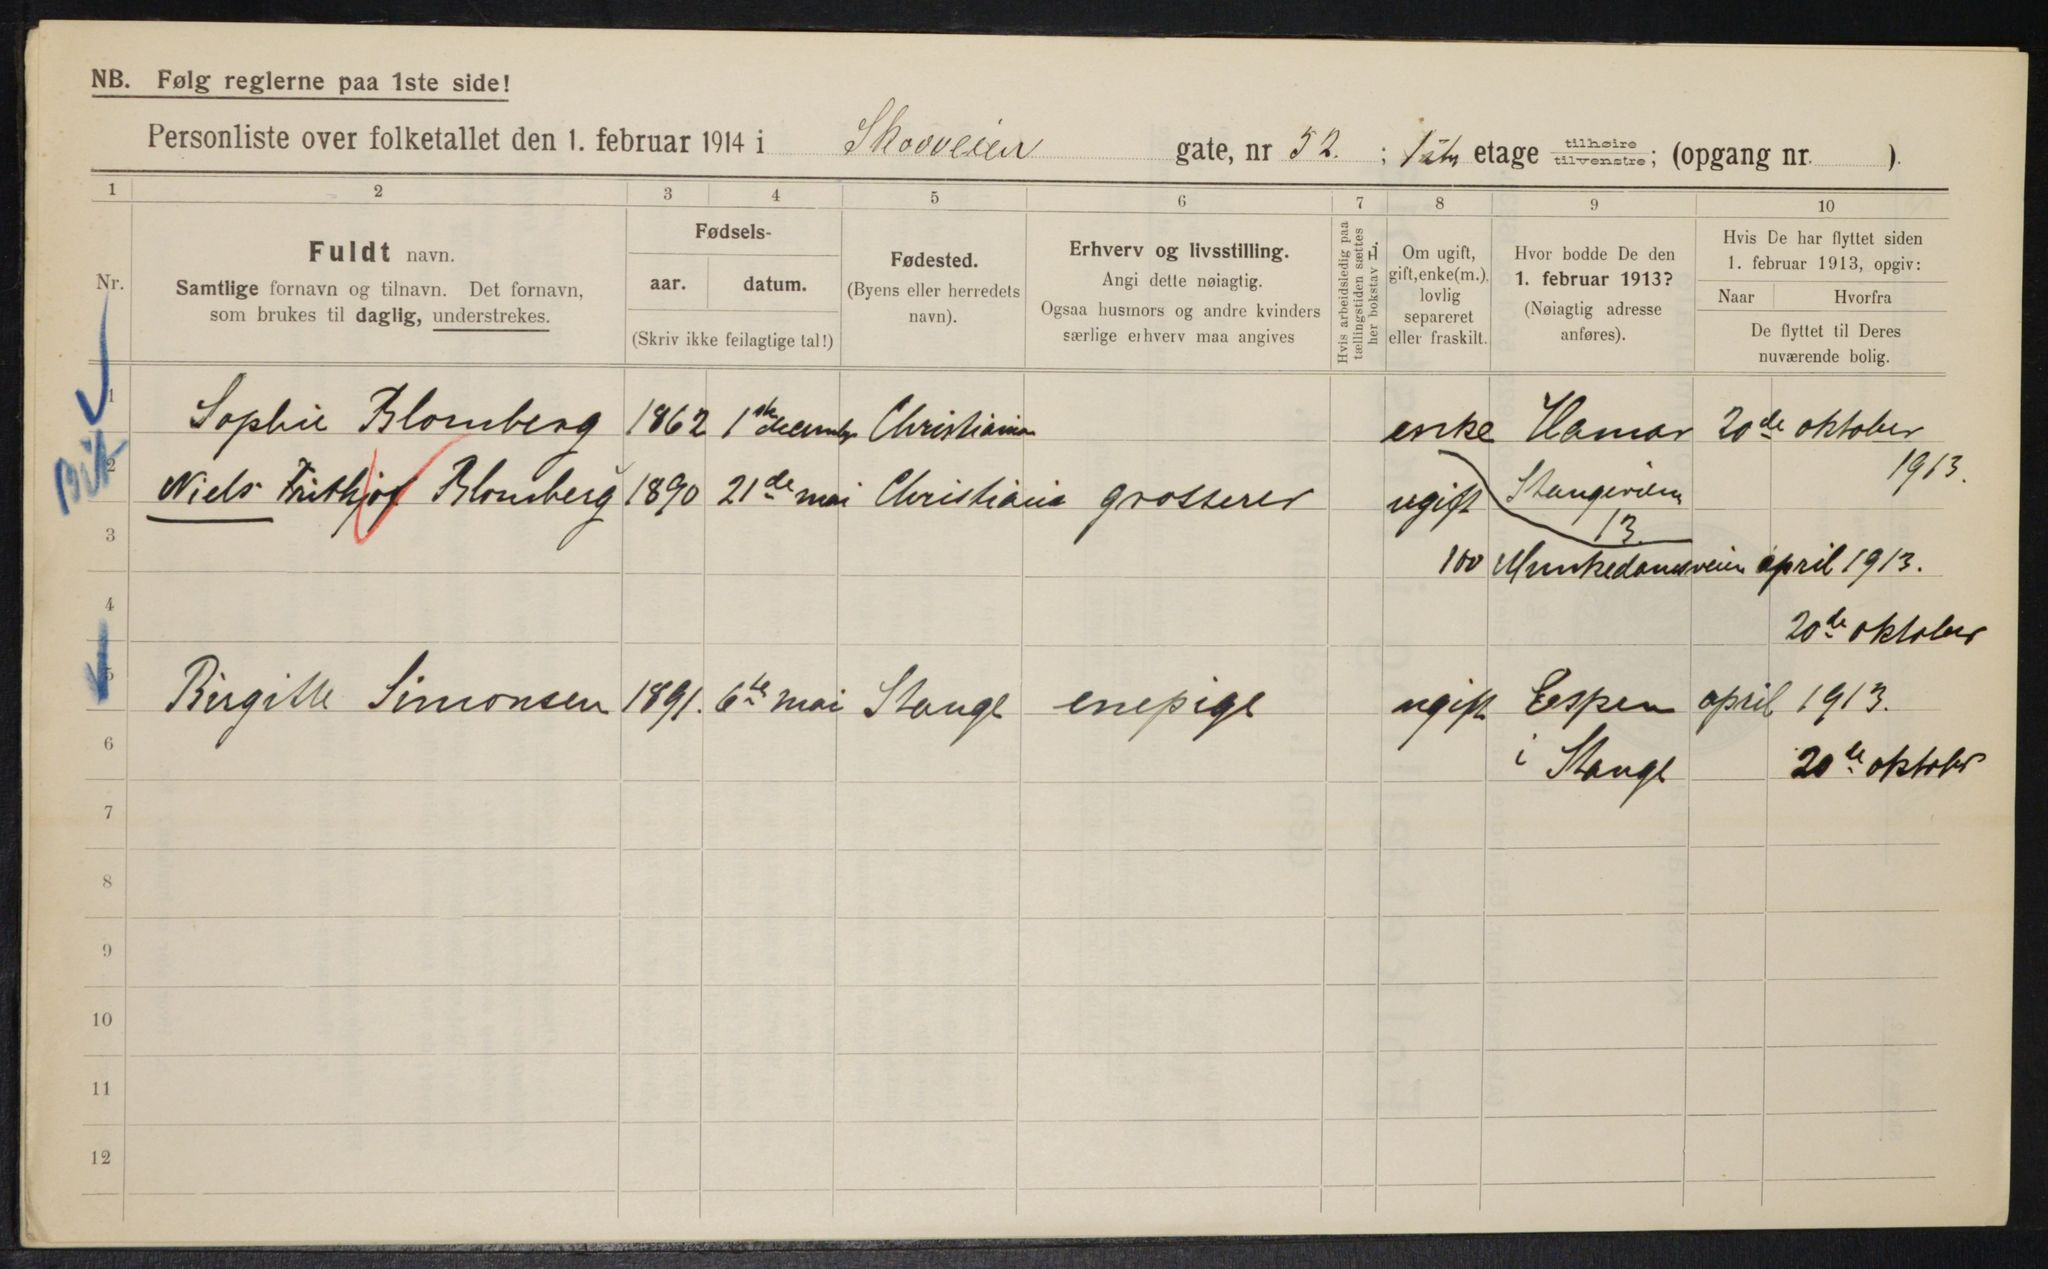 NB. Følg reglerne paa 1ste side!
Personliste over folketallet den 1. februar 1914 i Skovveien gate, nr 52. ; 1ste etage tilhøire tilvenstre; (opgang nr. ).
1 2 3 4 5 6 7 8 9 10
Nr.
Fuldt navn.
Samtlige fornavn og tilnavn. Det fornavn,
som brukes til daglig, understrekes.
Fødsels-
aar. datum.
(Skriv ikke feilagtige tal!)
Fødested.
(Byens eller herredets
navn).
Erhverv og livsstilling.
Angi dette nøiagtig.
Ogsaa husmors og andre kvinders
særlige erhverv maa angives
Hvis arbeidsledig paa
tællingstiden sættes
her bokstav L.
Om ugift,
gift, enke(m.),
lovlig
separeret
eller fraskilt.
Hvor bodde De den
1. februar 1913?
(Nøiagtig adresse
anføres).
Hvis De har flyttet siden
1. februar 1913, opgiv:
Naar Hvorfra
De flyttet til Deres
nuværende bolig.
1 Sophie Blomberg 1862 1ste december Christiania enke Hamar 20de oktober
1913.
2 Niels Frithjof Blomberg 1890 21de mai Christiania grosserer ugift Stangeveien
13.
3 100 Munkedamsveien april 1913.
4 20de oktober
5 Birgitte Simonsen 1891. 6te mai Stange enepige ugift Espen april 1913.
6 i Stange 20de oktober
7
8
9
10
11
12